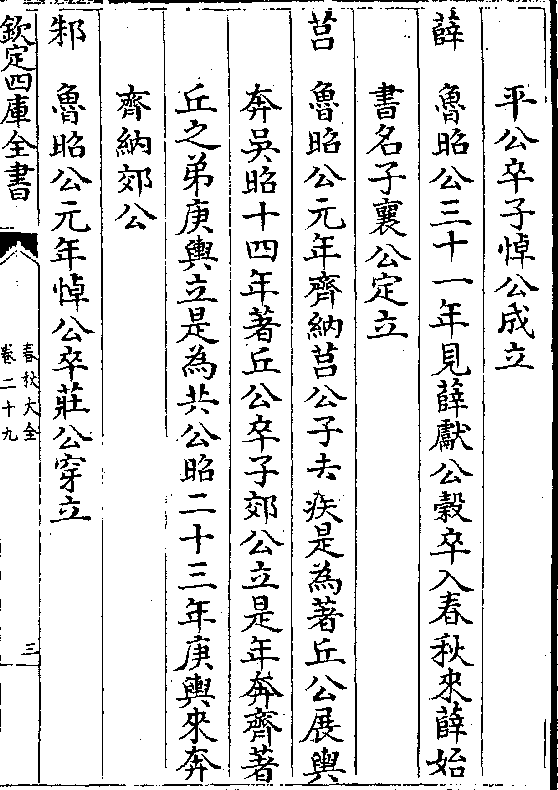 平公卒子悼公成立
薛　魯昭公三十一年見薛獻公穀卒入春秋來薛始
書名子襄公定立
莒　魯昭公元年齊納莒公子去疾是為著丘公展輿
奔吳昭十四年著丘公卒子郊公立是年奔齊著
丘之弟庚輿立是為共公昭二十三年庚輿來奔
齊納郊公
邾　魯昭公元年悼公卒莊公穿立
欽定四庫全書
春秋大全
卷二十九
三